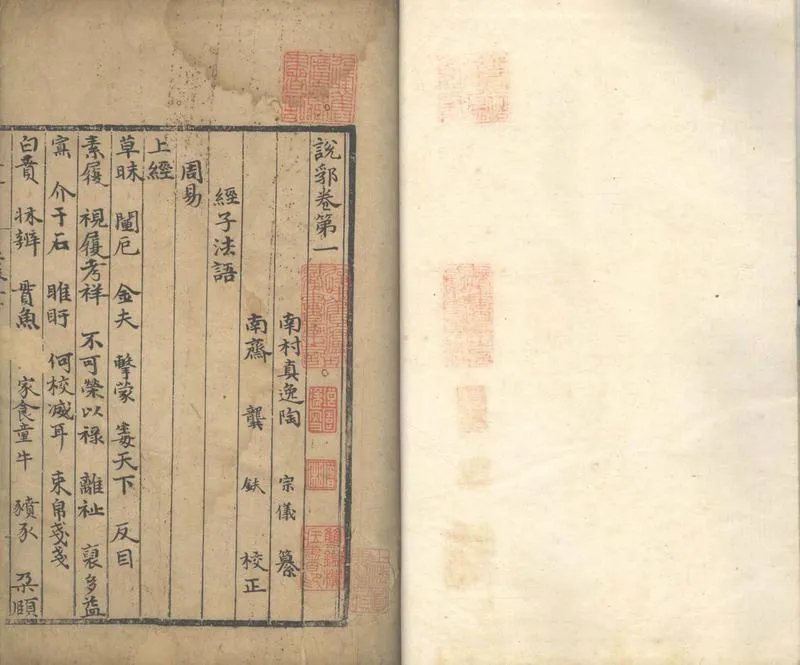 說郛卷第一
南村真逸陶 宗儀 纂
南齋 龔 鈇 校正
經子法語
周易
上經
草昧 闚戹 金夫 擊蒙 毒天下 反目
素履 視履考祥 不可榮以祿 離祉 裒多益
寡 介于石 睢盱 何校滅耳 束帛戔戔
白賁 牀辨 貫魚 家食童牛 豶豕 朶頤